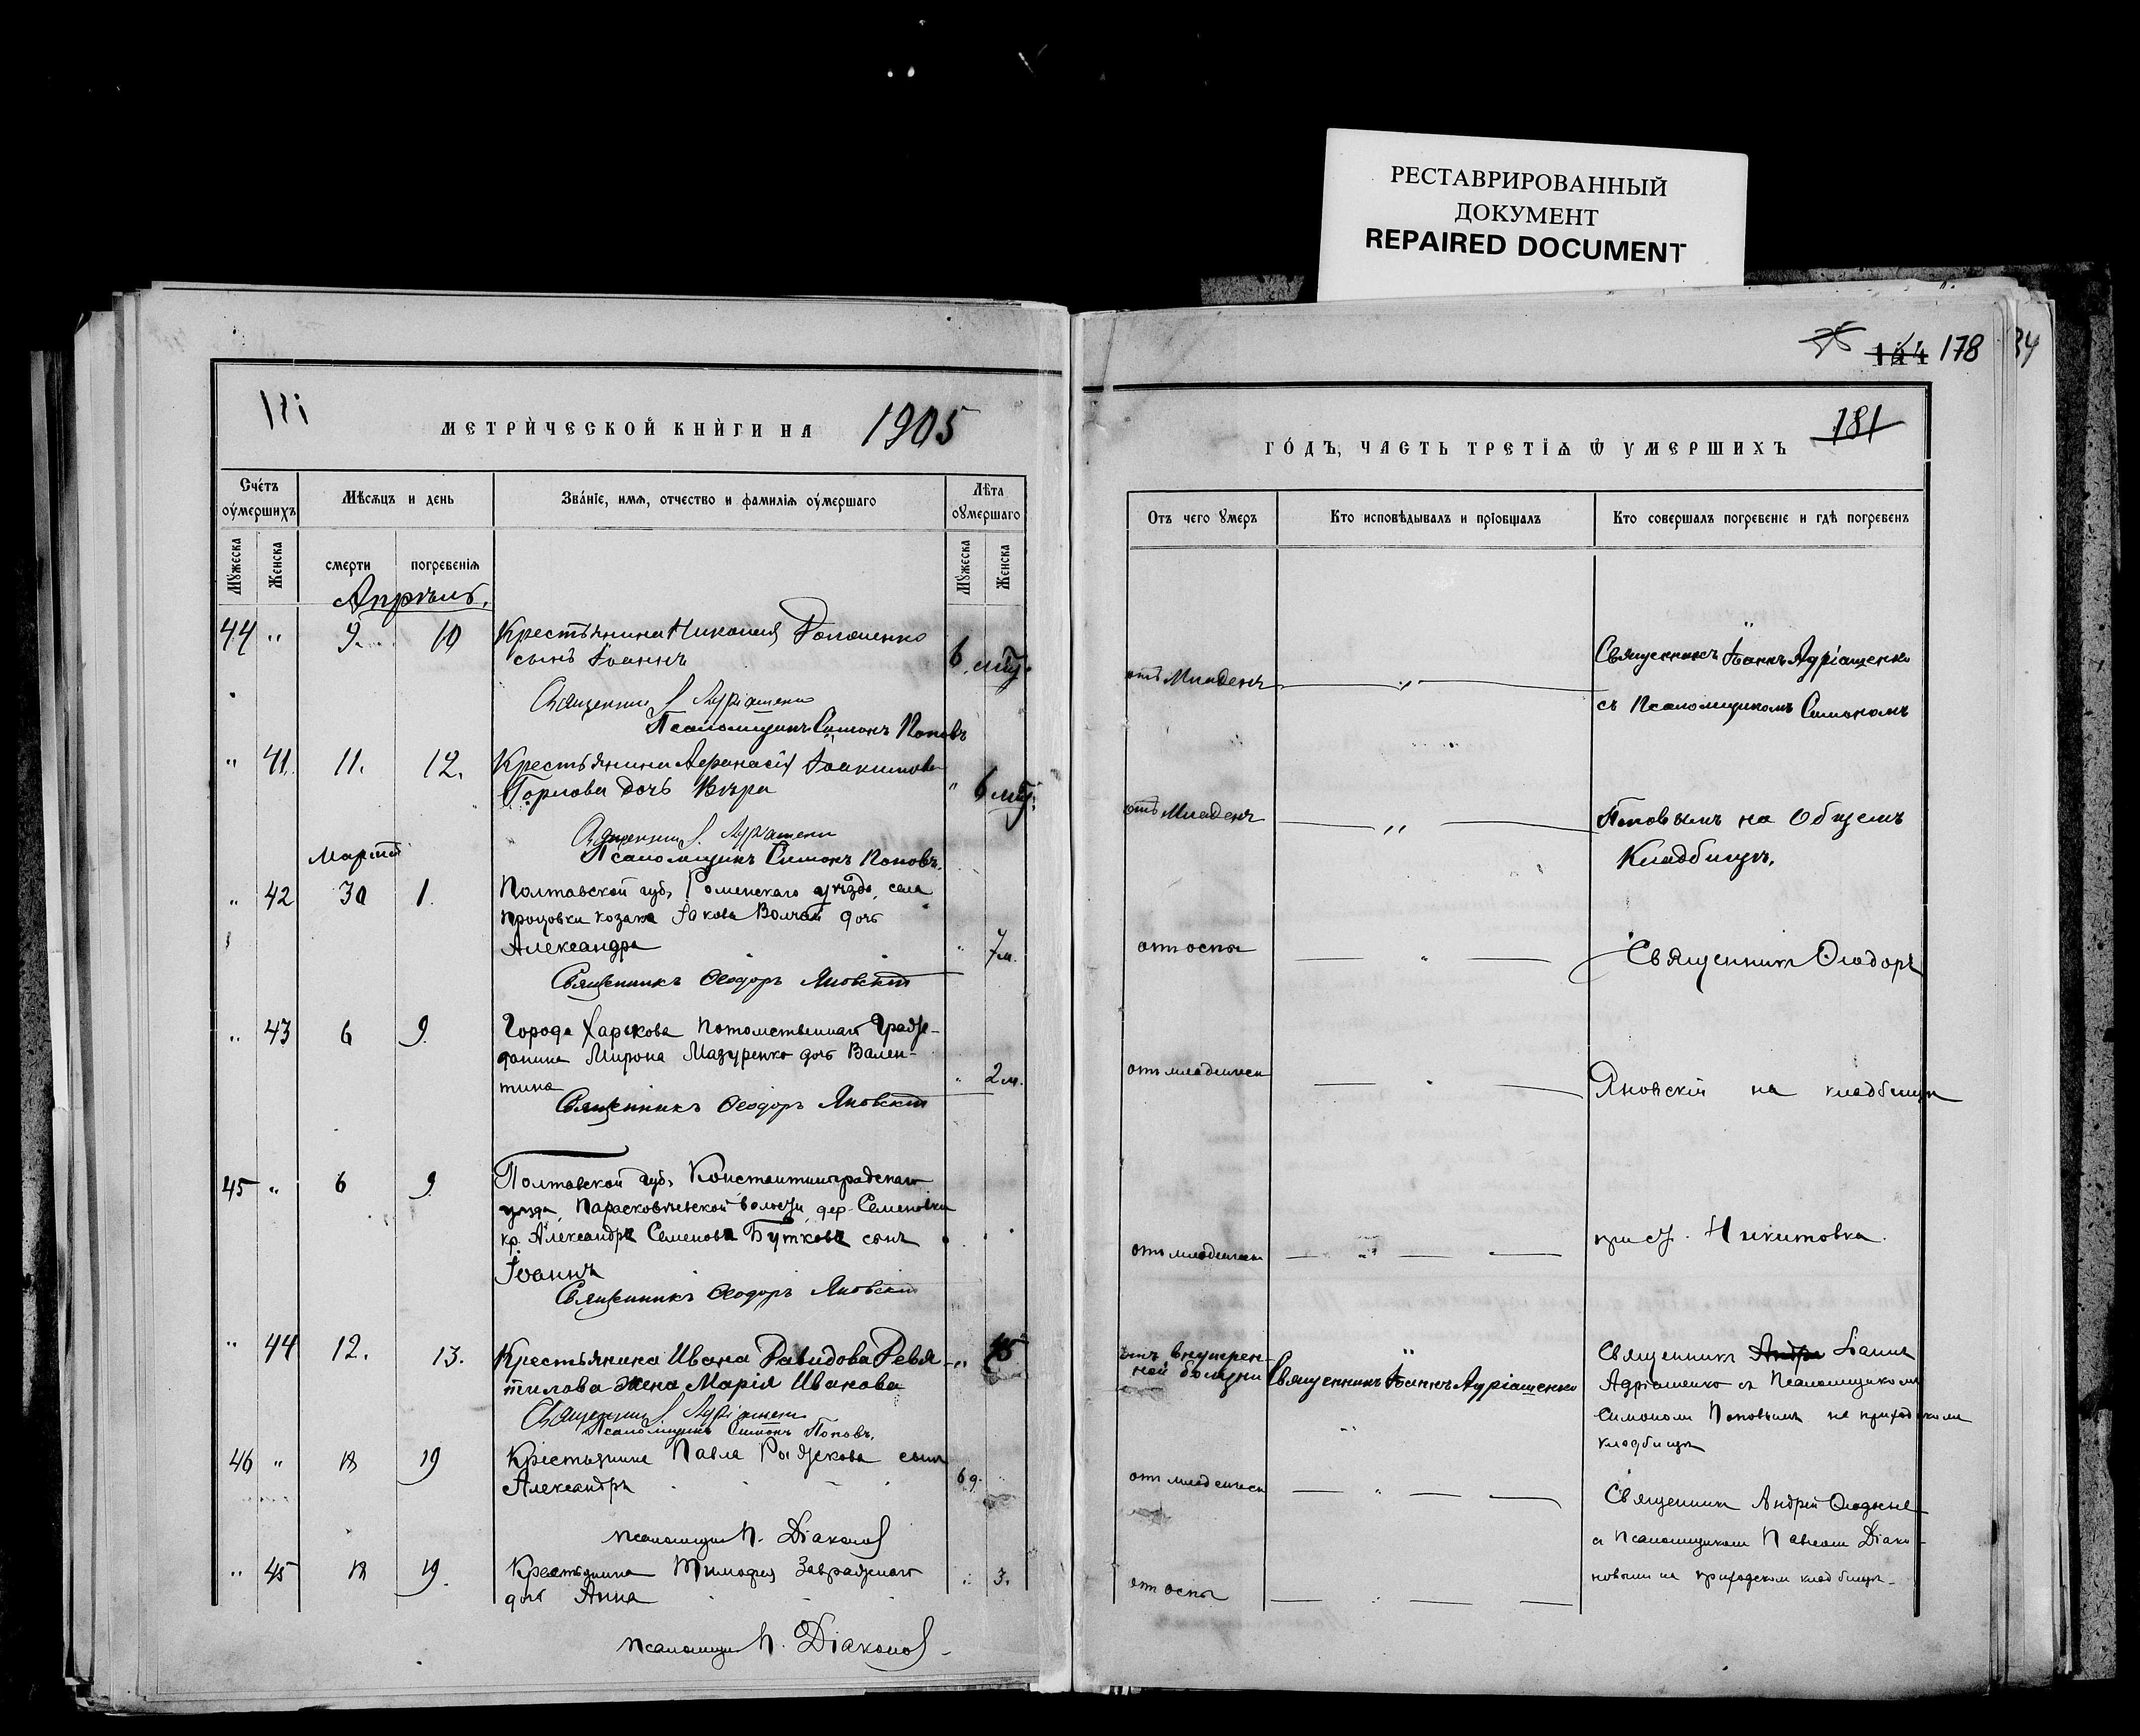 РЕСТАВРИРОВАННЫЙ
ДОКУМЕНТ
REPAIRED DOCUMENT
178
34
МЕТРИ́ЧЕСКОЙ КНИ́ГИ НА 1905
181
ГО́ДЪ, ЧАСТЬ ТРЕТІѦ Ѿ УМЕРШИХЪ
Сче́тъ оу́мершихъ
Мѣсѧцъ и день
Зва́ніе, имѧ, отчество и фамиліѧ оу́мершаго
Лѣта оумершаго
Мужеска
Женска
смерти
погребеніѧ
Мужеска
Женска
Отъ чего умеръ
Кто исповѣдывалъ и пріобщалъ
Кто совершалъ погребеніе и гдѣ погребенъ
Апрѣль.
44 " 9. 10 Крестьянина Николая
сынъ Іоаннъ 6 мц.
Псаломщикъ Симонъ Поповъ
отъ Младенч
Священникъ Іоаннъ Адріащенко
съ Псаломщикомъ Симономъ
" 41. 11. 12. Крестьянина Аѳанасія Іоакимова
Горлова дочь Вѣра " 6 мц.
Псаломщикъ Симонъ Поповъ.
отъ Младенч
Поповымъ на Общемъ
Кладбищѣ.
Мартъ
" 42 30 1. Полтавской губ. Роменскаго уѣзда, села
козака Якова дочь
Александра " 7 м.
Священникъ Ѳеодоръ Яновскій
отъ оспы
Священникъ Ѳеодоръ
" 43 6 9. Города Харькова потомственнаго Граж-
данина Мирона Мазуренко дочь Вален-
тина " 2 м.
Священникъ Ѳеодоръ Яновскій
отъ младенческ
Яновскій на кладбищѣ
45 " 6 9 Полтавской губ. Константиноградскаго
уѣзда, Парасковѣевской волости, дер. Семеновки
кр. Александра Семенова Буткова сынъ
Іоаннъ
Священникъ Ѳеодоръ Яновскій
отъ младенческ
при ст. Никитовка.
" 44 12. 13. Крестьянина Ивана Давидова Ревя-
тилова жена Марія Иванова " 45
Псаломщикъ Симонъ Поповъ.
отъ внутрен-
ней болѣзни
Священникъ Іоаннъ Адріащенко
Священникъ Іоаннъ
Адріащенко съ Псаломщикомъ
Симономъ Поповымъ на приходскомъ
кладбищѣ
46 " 18 19 Крестьянина Павла Рыжкова сынъ
Александръ 6 д.
псаломщикъ П. Діаконов
отъ младенческ
Священникъ Андрей
съ Псаломщикомъ Павломъ Діако-
новымъ на приходском кладбищѣ.
" 45 18 19. Крестьянина Тимофея Завражнаго
дочь Анна " 3.
псаломщикъ П. Діаконов
отъ оспы